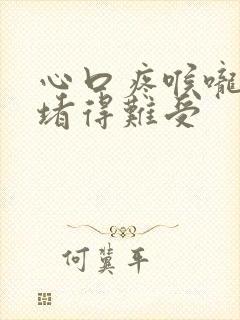 心口疼喉嚨
堵得難受
何冀平